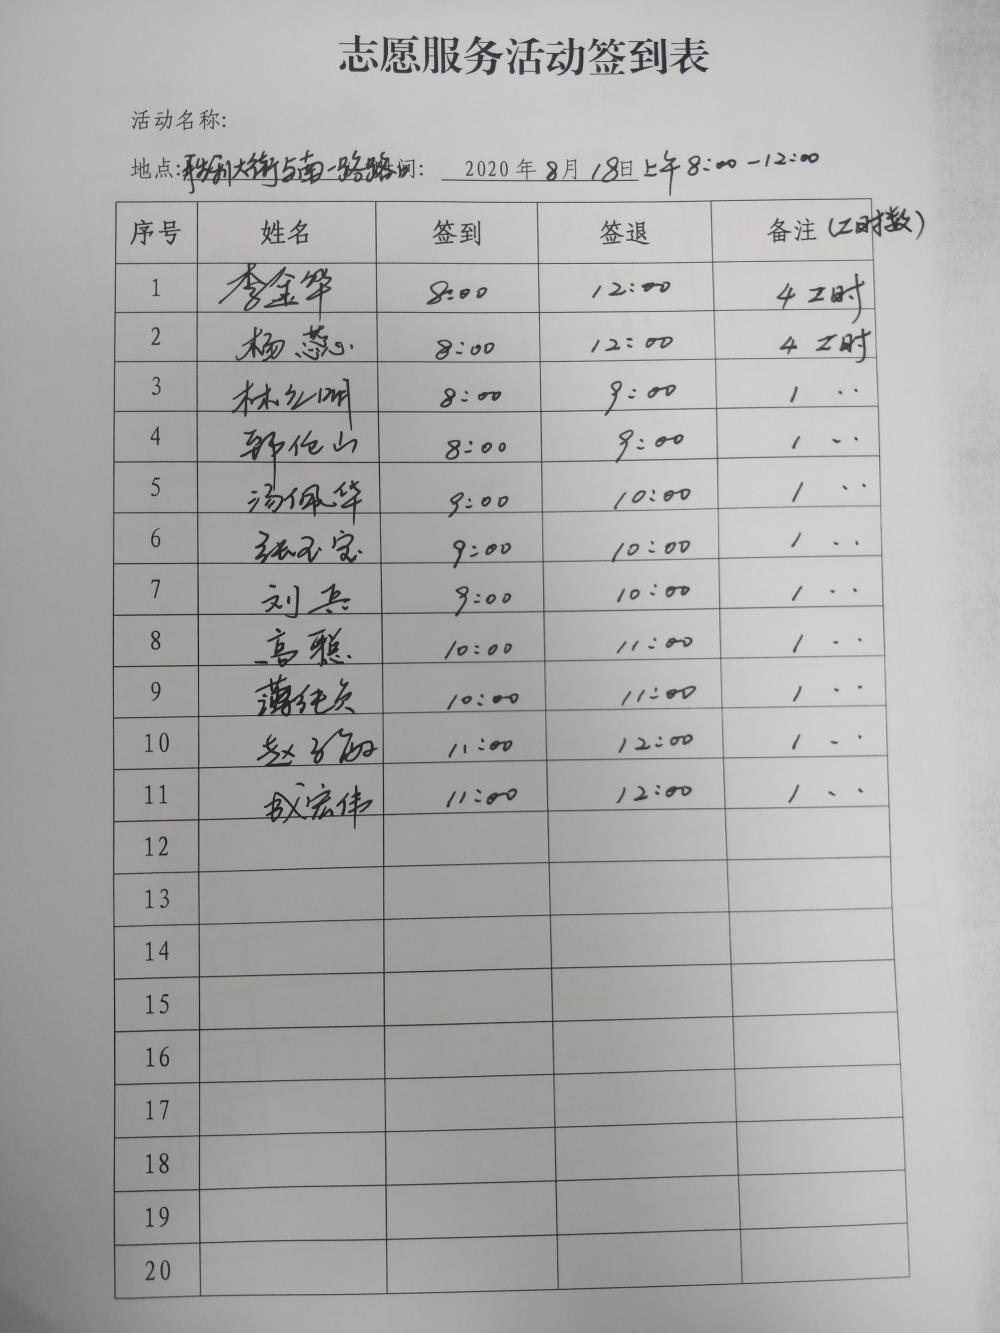 志愿服务活动签到表
活动名称:
地点:胜利大街与南一路路口 时间: 2020年8月18日上午8:00-12:00
序号 姓名 签到 签退 备注(工时数)
1 李金华 8:00 12:00 4工时
2 杨蕊 8:00 12:00 4工时
3 林 8:00 9:00 1 ..
4 郭 山 8:00 9:00 1 ..
5 汤佩华 9:00 10:00 1 ..
6 张玉宝 9:00 10:00 1 ..
7 刘兵 9:00 10:00 1 ..
8 高聪 10:00 11:00 1 ..
9 薄纯贞 10:00 11:00 1 ..
10 赵 11:00 12:00 1 ..
11 宏伟 11:00 12:00 1 ..
12
13
14
15
16
17
18
19
20